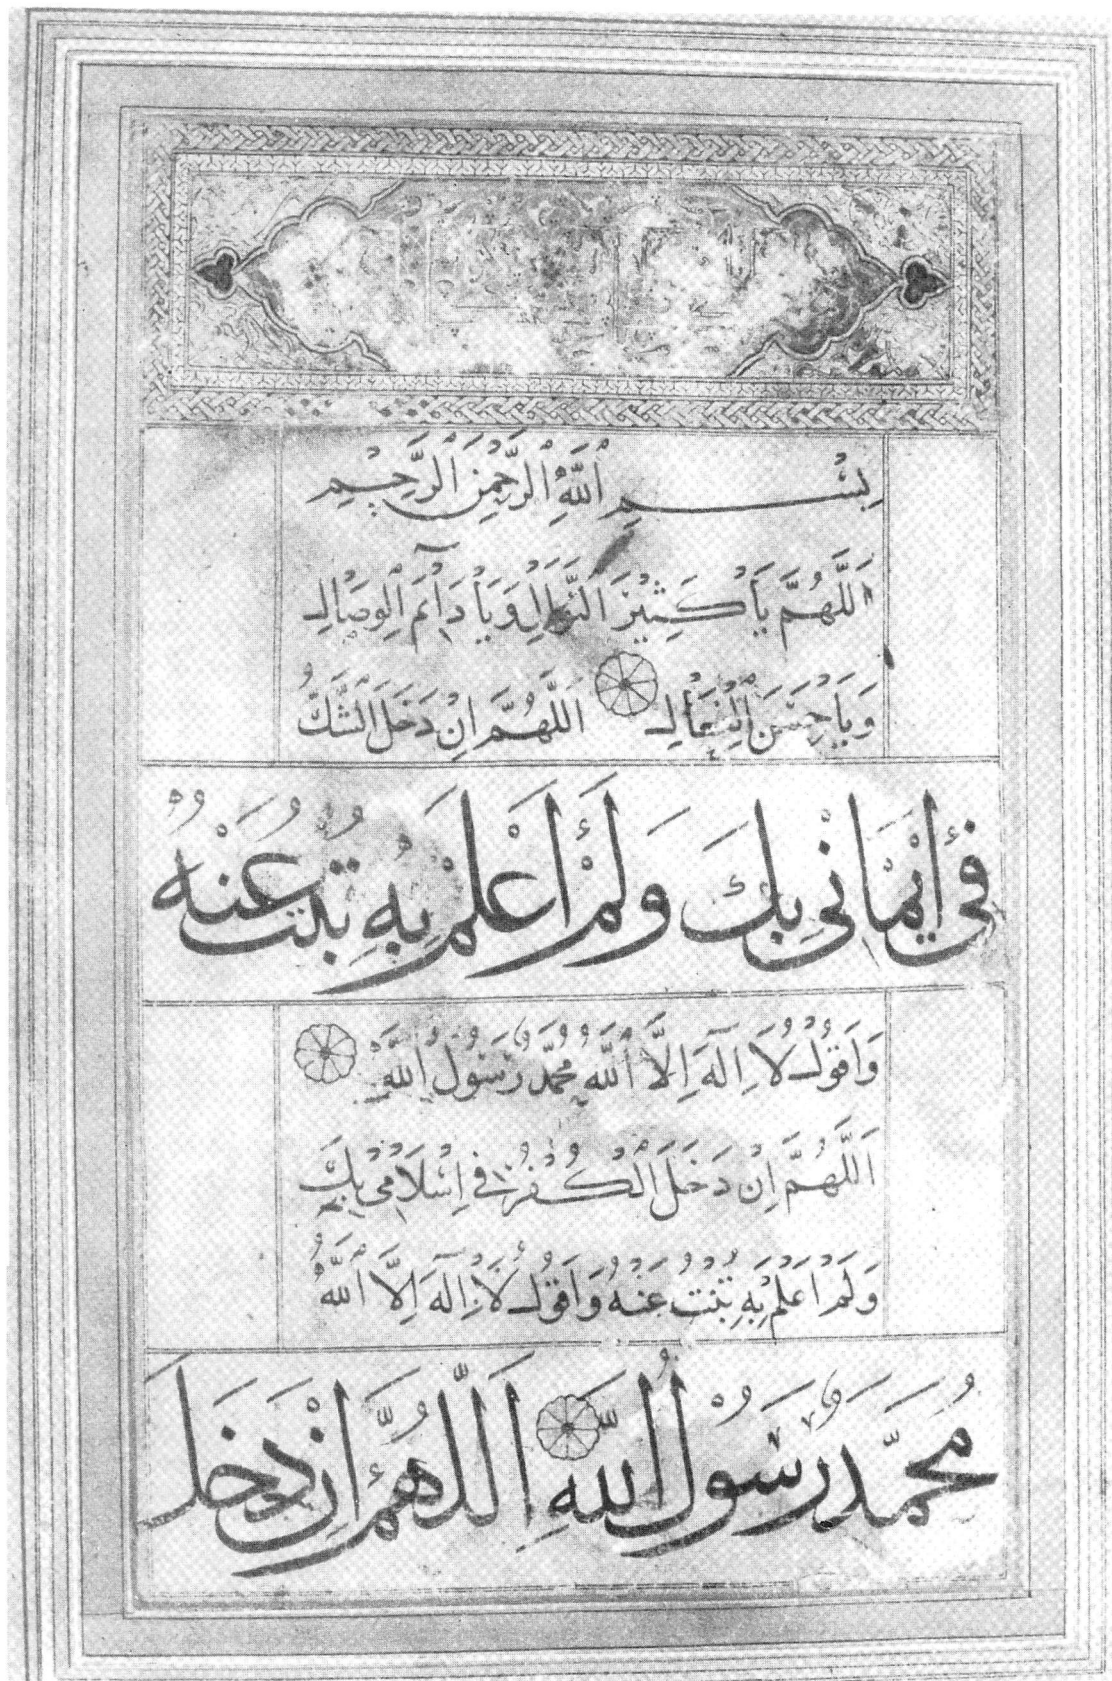 بِسْمِ اللَّهِ الرَّحْمٰنِ الرَّحِيمِ
اَللَّهُمَّ يَا كَثِيْرَ النَّوَالِ وَيَا دَآئِمَ الْوِصَالِ
وَيَا حَسَنَ الْفِعَالِ اَللَّهُمَّ اِنْ دَخَلَ الشَّكُّ
فِىْ اِيْمَانِىْ بِكَ وَلَمْ اَعْلَمْ بِهِ تُبْتُ عَنْهُ
وَاَقُوْلُ لَا اِلَهَ اِلَّا اللّٰهُ مُحَمَّدٌ رَسُوْلُ اللّٰهِ
اَللَّهُمَّ اِنْ دَخَلَ الْكُفْرُ فِى اِسْلَامِىْ بِكَ
وَلَمْ اَعْلَمْ بِهِ تُبْتُ عَنْهُ وَاَقُوْلُ لَا اِلَهَ اِلَّا اللّٰهُ
مُحَمَّدٌ رَسُوْلُ اللّٰهِ اَللَّهُمَّ اِنْ دَخَلَ